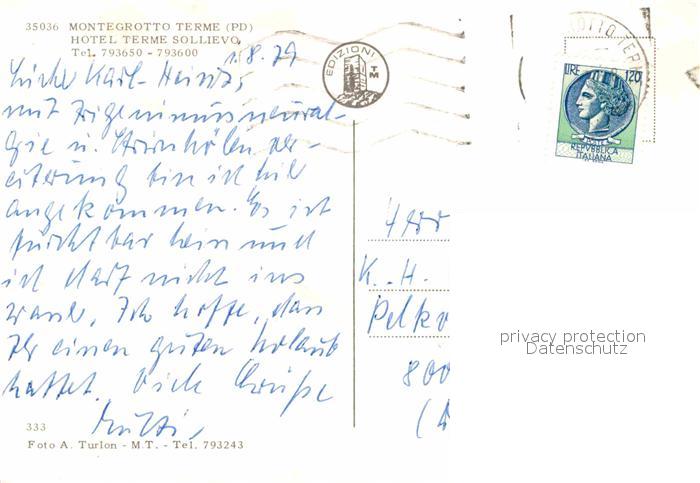 35036 MONTEGROTTO TERME (PD)
HOTEL TERME SOLLIEVO
Tel. 793650 - 793600
1.8.79
Liebe Karl-Heinz,
mit Trigeminusneural-
gie u. Stirnhölen ver-
eiterung bin ich hie
angekommen. Es ist
furchtbar hein und
ich darf nicht ins
wasser. Ich hoffe, dass
Ihr einen guten Urlaub
hattet. Viele Grüße
Mutti,
333
Foto A. Turlon - M.T. - Tel. 793243
EDIZIONI
TM
LIRE 120
POSTE
REPVBBLICA
ITALIANA
Herr
K. H.
800
privacy protection
Datenschutz